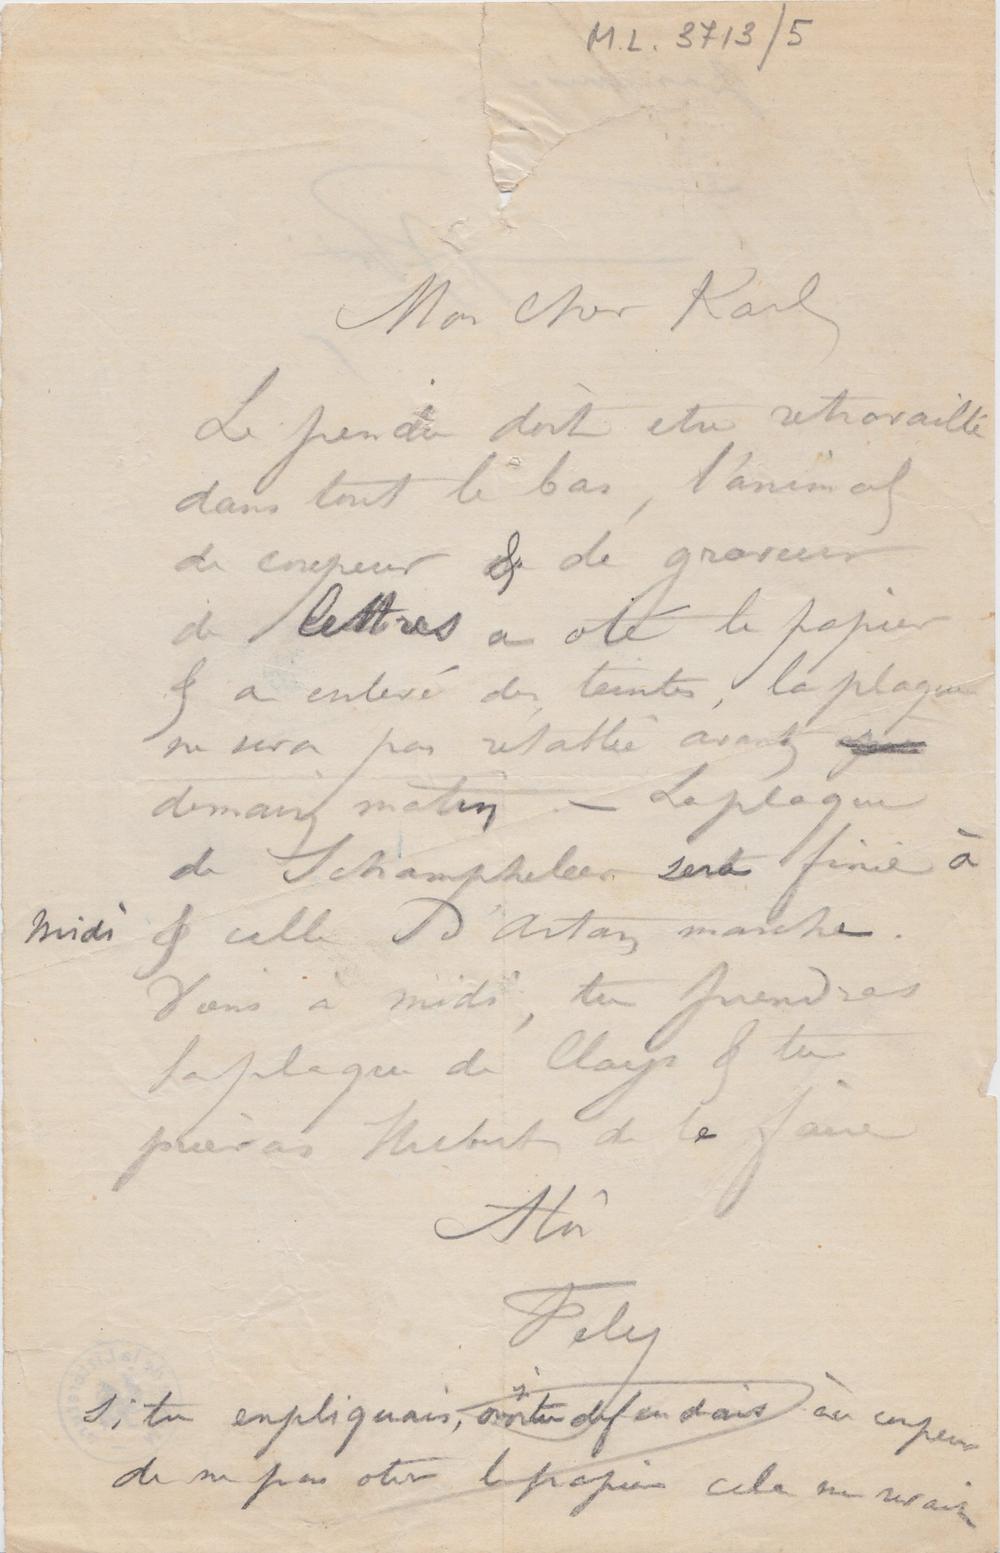 M.L. 3713/5
Mon cher Karl
Le pendu doit etre retravaillé
dans tout le bas, l'animal
de coupeur & de graveur
de lettres a oté le papier
& a enlevé des teintes, la plaque
ne sera pas rétablie avant
demain matin. — La plaque
de Schampheleer sera finie à
midi & celle D'Artan marche.
Viens à midi, tu prendras
la plaque de Clays & tu
prieras Hubert de le faire
A toi
Fely
si tu expliquais, si tu defendais au coupeur
de ne pas oter le papier cela ne serait